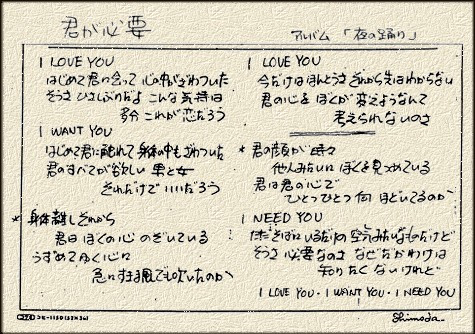 君が必要
アルバム 「夜の踊り」
I LOVE YOU
はじめて君に会って 心の中がざわついた
そうさ ひさしぶりだよ こんな気持は
多分 これが恋だろう
I WANT YOU
はじめて君に触れて 身体の中もざわついた
君のすべてが欲しい 男と女
それだけで いいだろう
* 身体離し それから
君は ぼくの心 のぞいている
うずめてゆく心に
急にすきま風でも吹いたのか
I LOVE YOU
今だけは ほんとうさ それから先はわからない
君の心を ぼくが変えようなんて
考えられないのさ
* 君の顔が 時々
他人みたいに ぼくを見つめている
君は君の心で
ひとつひとつ何 ほどいてるのか
I NEED YOU
ただそばにいるだけの 空気みたいなものだけど
そうさ 必要なのさ なぜだかわけは
知りたくないけれど
I LOVE YOU・I WANT YOU・I NEED YOU
Shimoda